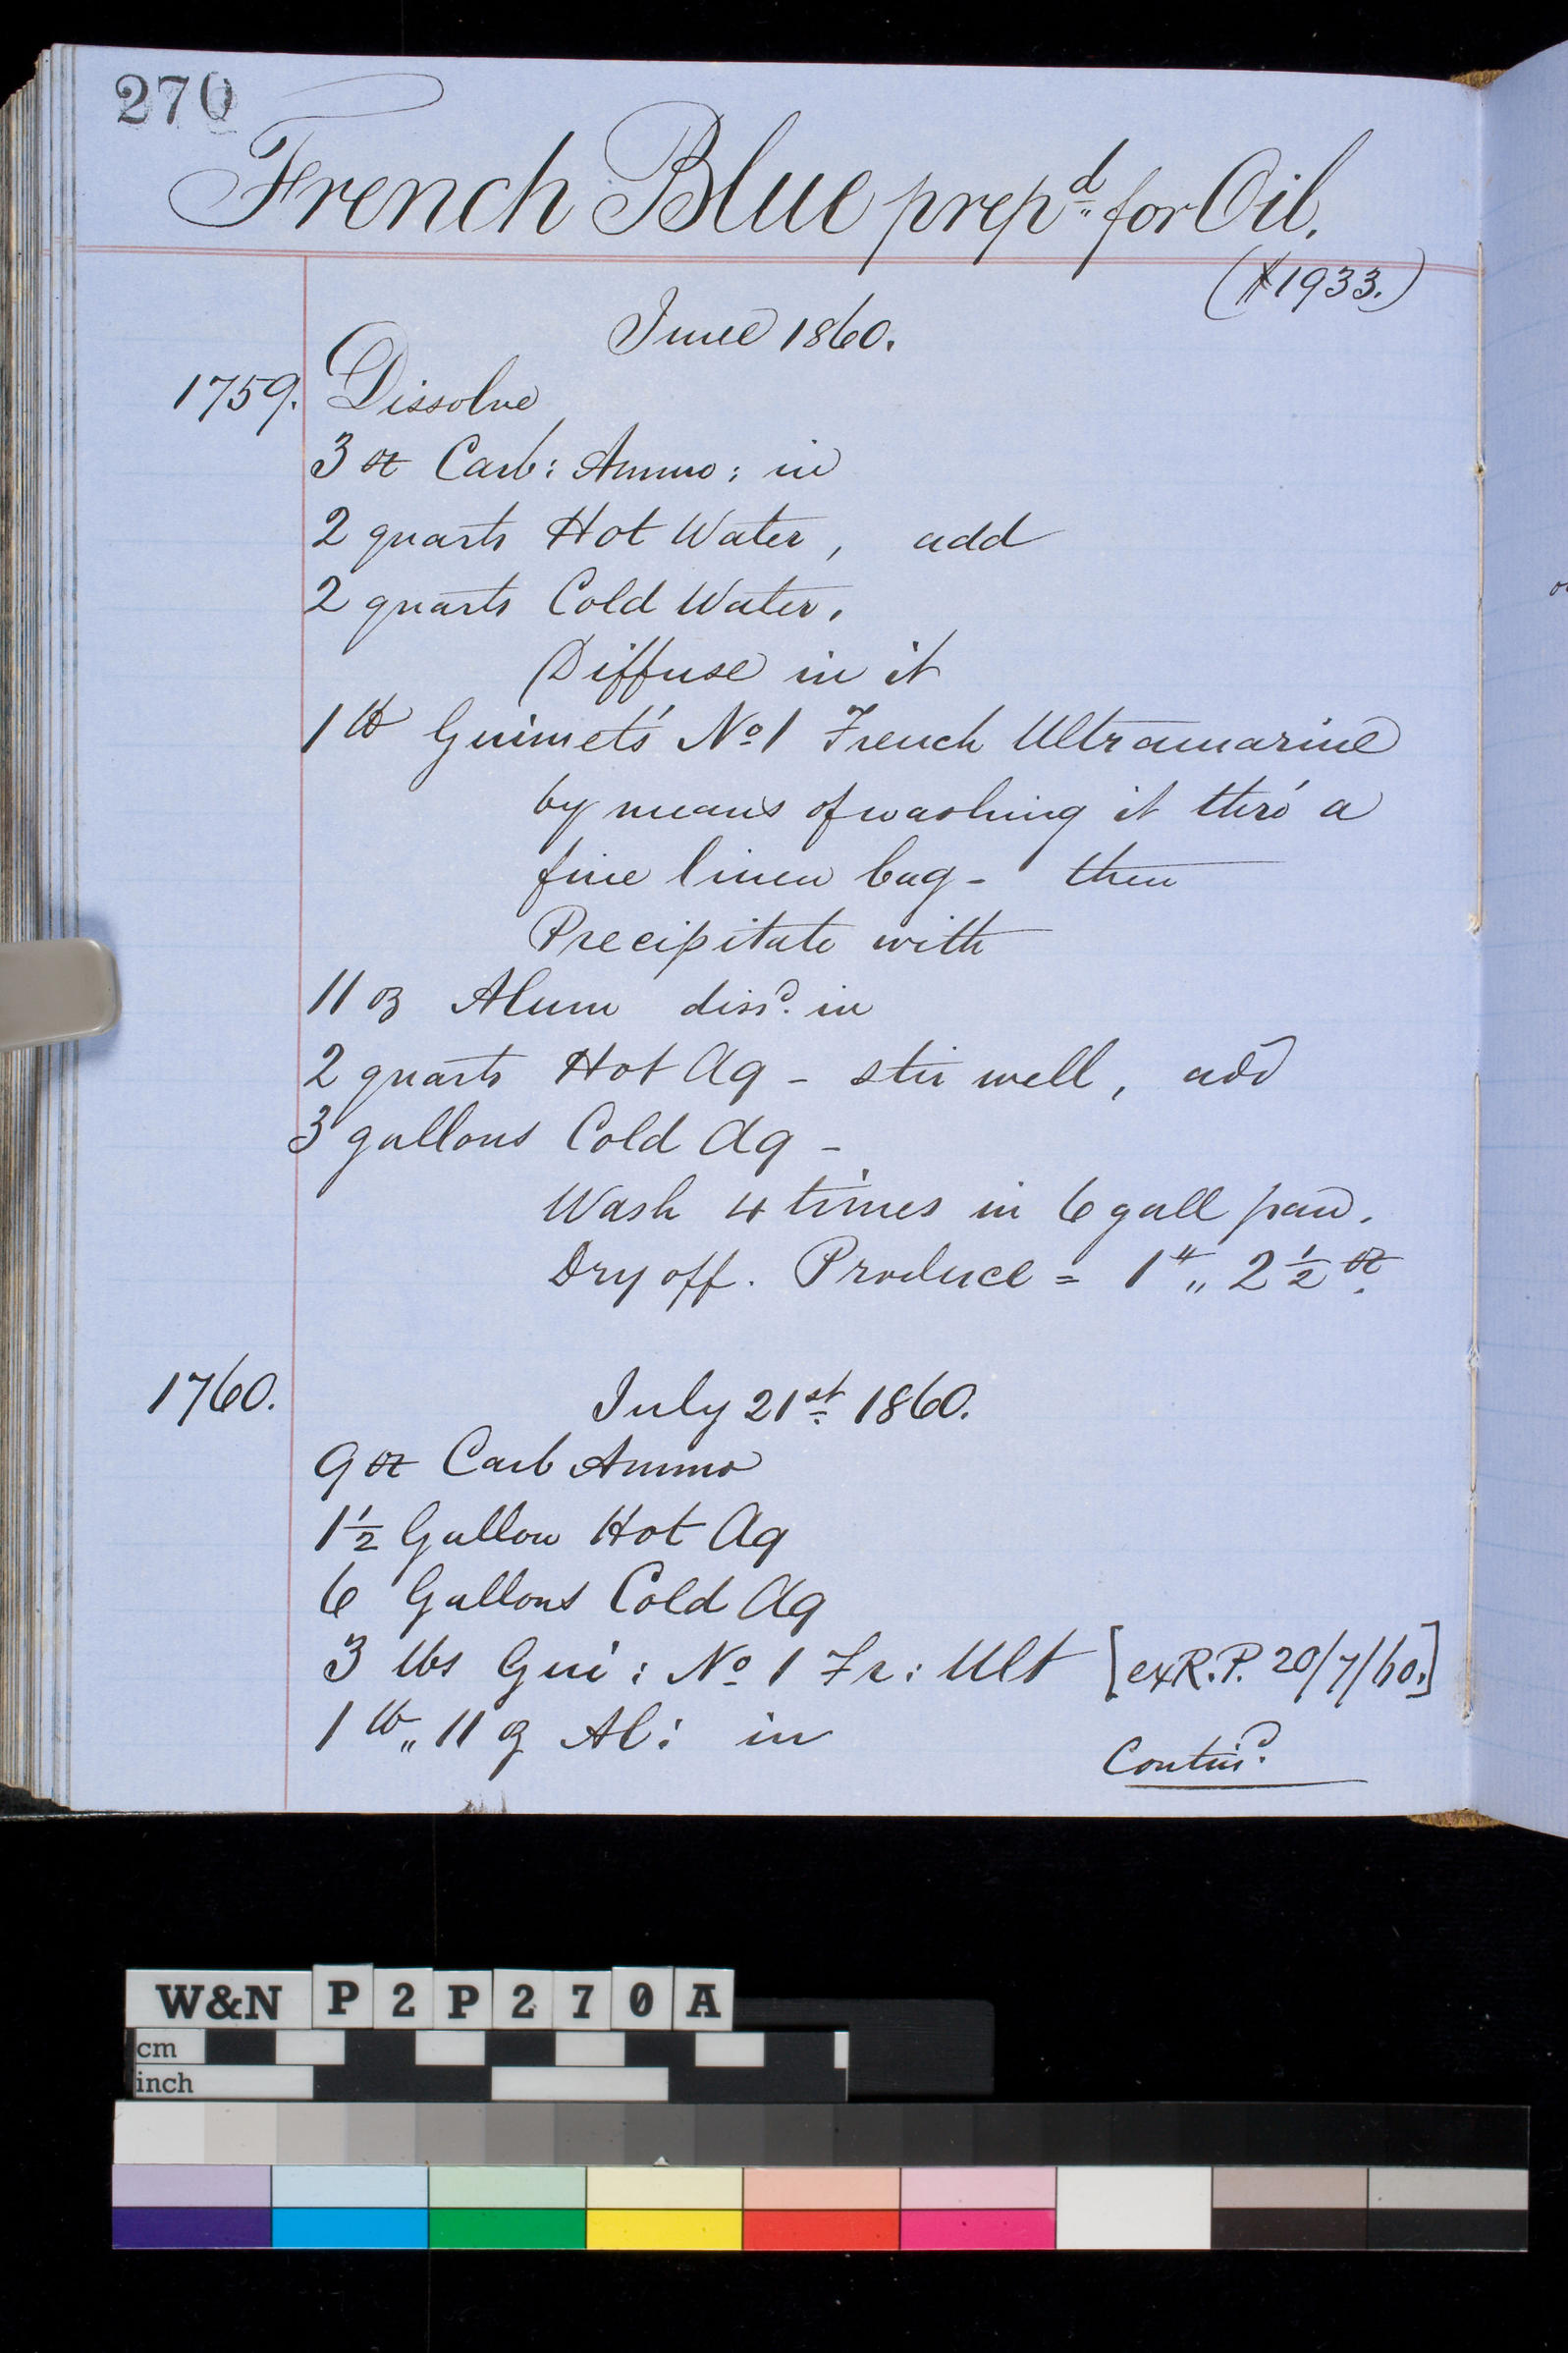 270
French Blue prepd. for Oil.
(X1933.)
June 1860.
1759. Dissolve
3 oz Carb: Ammo: in
2 quarts Hot Water, add
2 quarts Cold Water.
Diffuse in it
1 lb Guimet's No 1 French Ultramarine
by means of washing it thro' a
fine linen bag - then
Precipitate with
11 oz Alum dissd. in
2 quarts Hot Aq - stir well, add
3 gallons Cold Aq -
Wash 4 times in 6 gall pan.
Dry off. Produce = 1 lb „ 2 1/2 oz.
1760. July 21st. 1860.
9 oz Carb Ammo
1 1/2 Gallon Hot Aq
6 Gallons Cold Aq
3 lbs Gui: No 1 Fr: Ult [ex R.P. 20/7/60.]
1 lb „ 11 oz Al: in
Contind.
W&N P2P270A
cm
inch